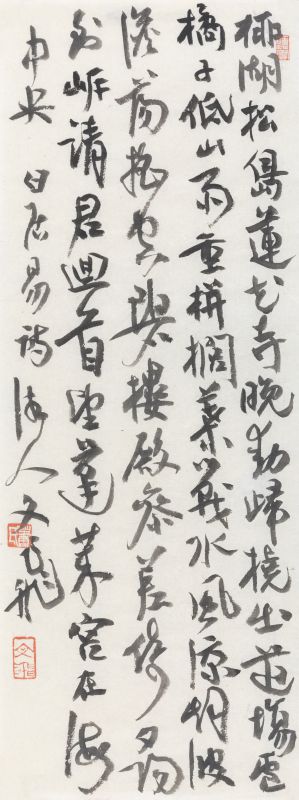 柳湖松島蓮花寺晚動歸橈出道場盧
橘子低山雨重栟櫚葉戰水風涼烟波
澹蕩搖空碧樓殿參差倚夕陽
到岸請君迴首望蓬萊宮在海
中央 白居易詩 人文飛
文飛